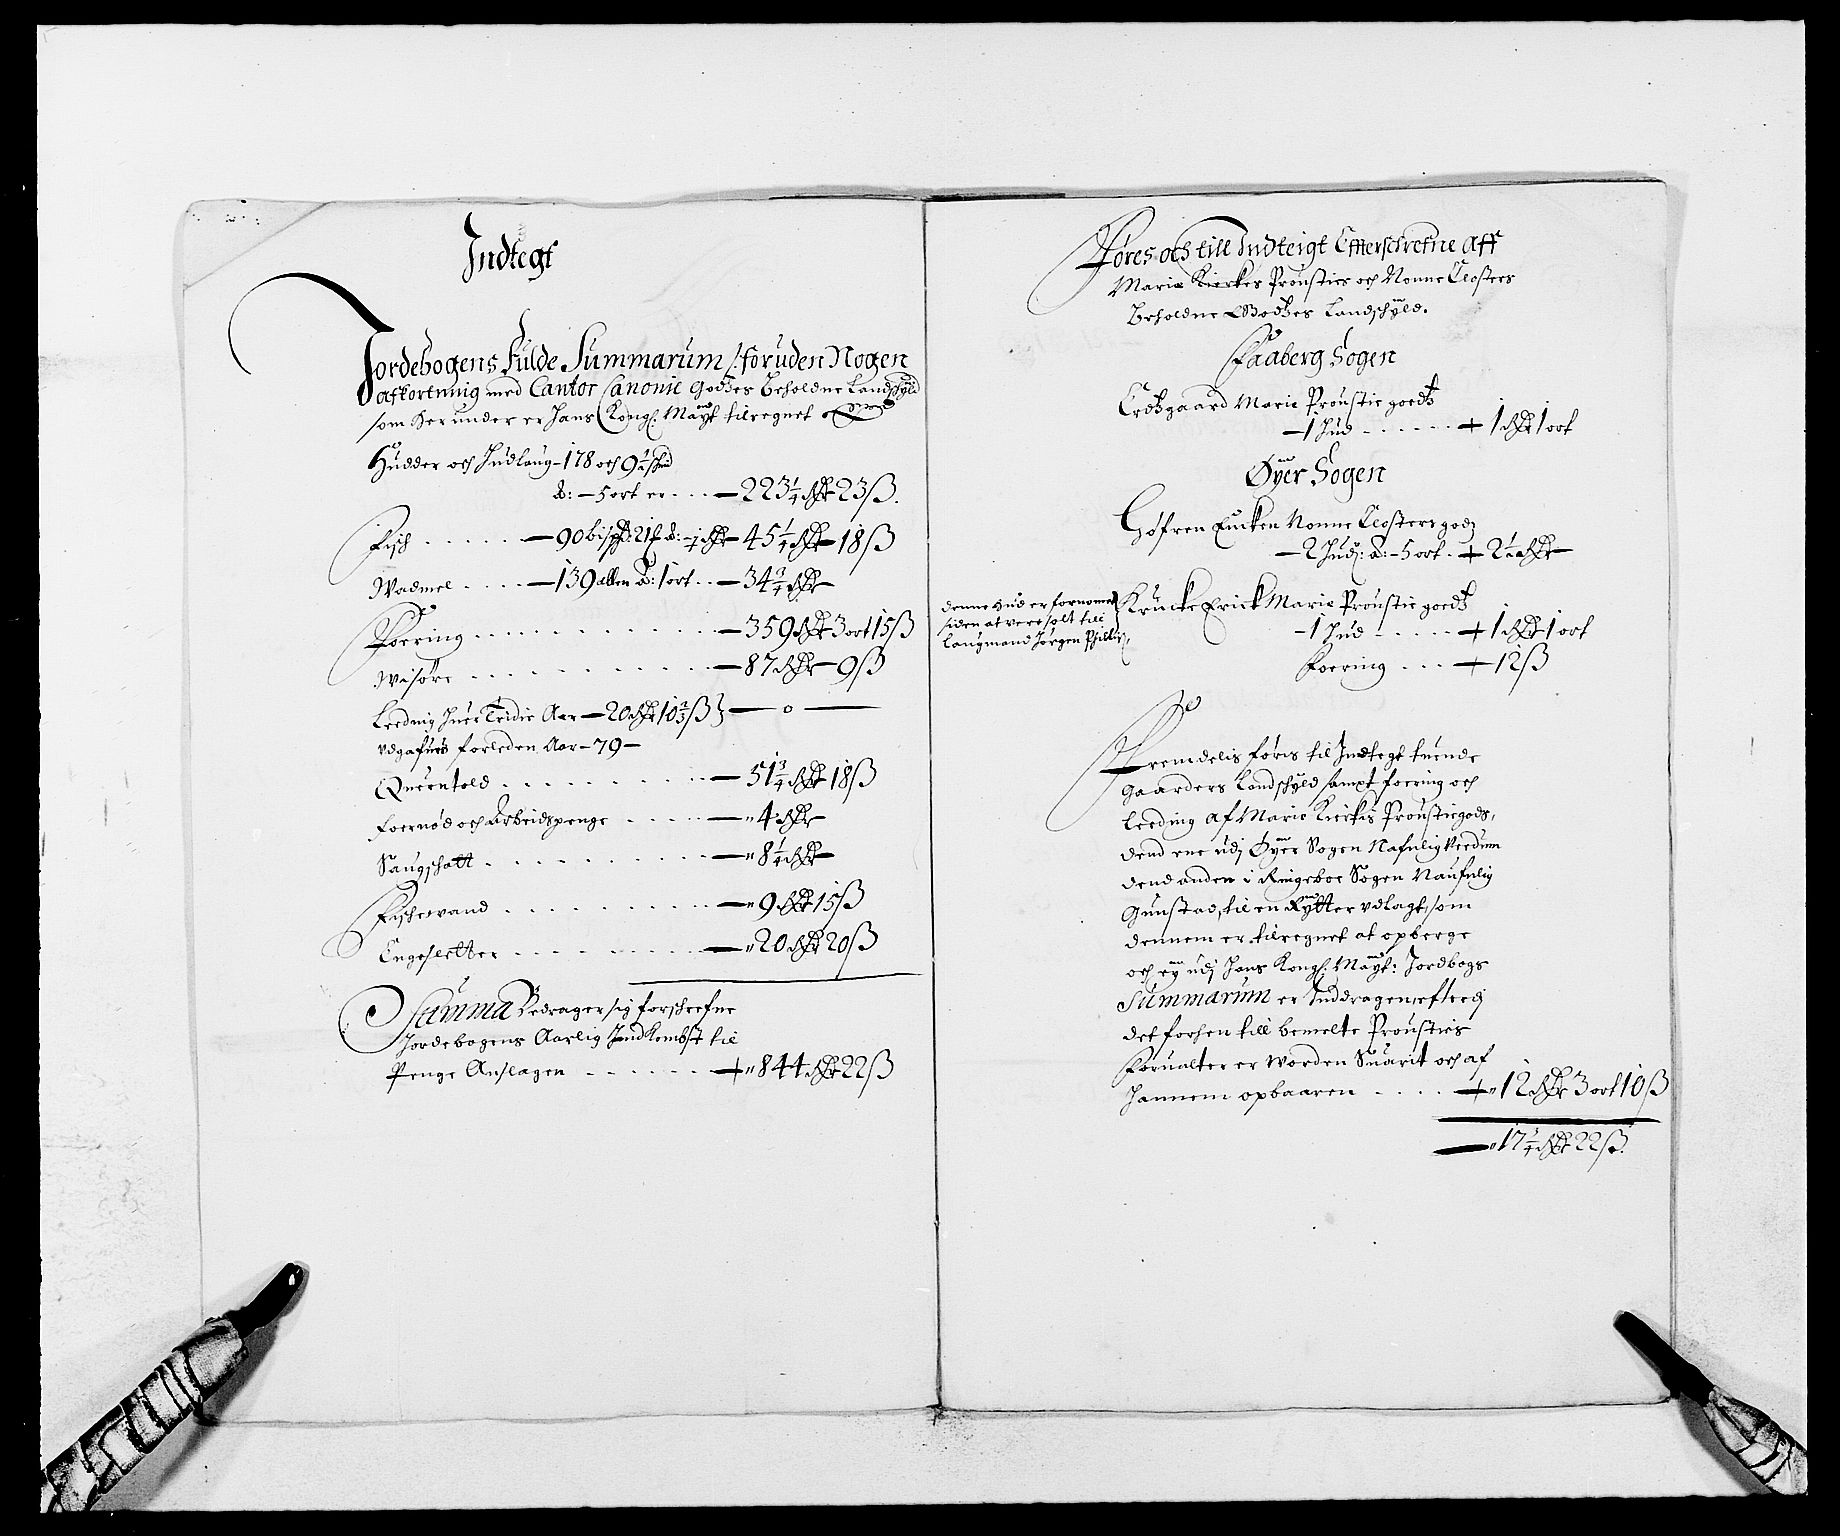 Indtegt
Jordebogens Fulde Summarum /: foruden Nogen
afkortning med Cantor Canonie Godtzes Beholdne Landschyld
som herunder er hans Kongl: Maÿt tilregnet
Hudder och Hudlaug - 178 och 9 1/2 schind
à: - 5 ort er . . . - 223 1/4 Rdr 23 ß.
Fisch . . . . . . - 90 bispd: 21 à: - 1/2 Rdr - 45 1/4 Rdr - 18 ß
Wadmel . . . . - 139 allen à: 1 ort . . - 34 3/4 Rdr
Foering . . . . . . . . . . . - 359 Rdr 3 ort 15 ß
Wisøre . . . . . . . . . . - 87 Rdr - 9 ß
Leeding huer Tridie Aar - 20 Rdr 10 2/3 ß } - o -
udgafues forleden Aar - 79 -
Queentold . . . . . . . . . - 51 3/4 Rdr 18 ß
Foernød och Arbeidspenge . . . . - " 4 Rdr
Saugschatt . . . . . . . . . . - " 8 1/4 Rdr
Fischewand . . . . . . . . . . - " 9 Rdr 15 ß
Engesletter . . . . . . . . . - " 20 Rdr 20 ß
Summa Bedrager sig forschrefne
Jordebogens Aarlig Indkombst til
Penge Anslagen - - - - - - + " 844 Rdr 22 ß
Føres och till Indteigt Efferschrefne Aff
Marie Kierkes Prousties och Nonne Closters
Beholdne Godtzes Landschÿld.
Faaberg Sogen
Crodtzgaard Marie Proustie goedtz
- 1 Hud . . . . . . + 1 Rdr 1 ort
Øÿer Sogen
Gøfren Eucken Nonne Closters godz
- 2 Hud: à: - 5 ort . + 2 1/2 Rdr -
denne Hud er fornomet
siden at vere solt till
Laugmand Jørgen Phillip.
Krucke Erick Marie Proustie goedtz
- 1 Hud . . . . . + 1 Rdr 1 ort
Foering . . . + 12 ß
Fremdelis føris til Indtegt tuende
Gaarders Landschÿld sampt foering och
Leeding af Marie Kierkis Proustiegods,
dend ene udj Øÿer Sogen Nafnlig
dend anden i Ringeboe Sogen Naufnlig
Gunstad, til en Rÿtter udlagt, som
dennem er tilregnet at opberge
och eÿ udj hans Kongl: Maÿt: Jordbogs
Summarum er Inddragen, efterdj
det forhen till bemelte Proustiets
Forualter er worden Suarit och af
hannem opbaaren . . . . + " 12 Rdr 3 ort 10 ß
- " 17 3/4 Rdr 22 ß.